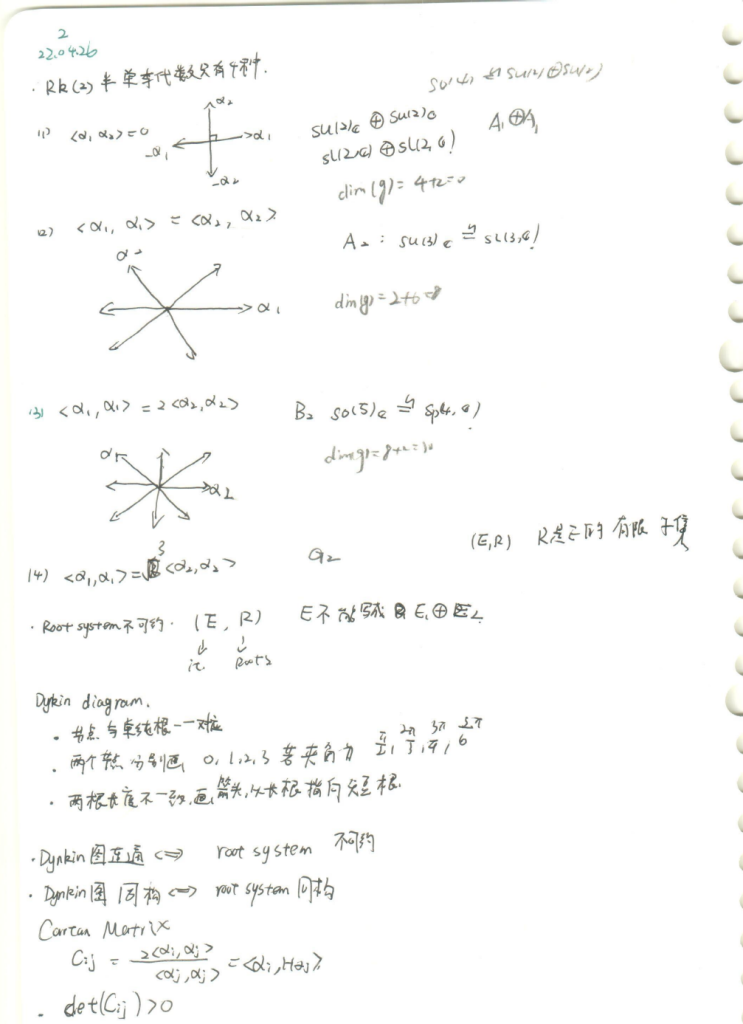 2
22.04.26
· Rk(2) 半单李代数只有4种.
so(4) ≅ su(2)⊕su(2)
(1) <α₁, α₂>=0
α₂
α₁
-α₁
-α₂
su(2)c ⊕ su(2)c
A₁⊕A₁
sl(2,c) ⊕ sl(2,c)
dim(g) = 4+2=6
(2) <α₁, α₁> = <α₂, α₂>
α₂
α₁
A₂ : su(3)c ≅ sl(3,c)
dim(g)=2+6=8
(3) <α₁,α₁> = 2<α₂,α₂>
α₁
α₂
B₂ so(5)c ≅ sp(4,c)
dim(g)=8+2=10
(4) <α₁,α₁>=3<α₂,α₂>
G₂
(E,R) R是E的有限子集
· Root system不可约. (E, R) E不能写成 E₁⊕E₂
↓ ↓
it. Roots
Dykin diagram.
· 节点与单纯根一一对应
· 两个节点分别画 0,1,2,3 若夹角为 π/2, 2π/3, 3π/4, 5π/6
· 两根长度不一致,画箭头,从长根指向短根.
· Dynkin图连通 <=> root system 不可约
· Dynkin图同构 <=> root system同构
Cartan Matrix
Cij = 2<αi,αj>/<αj,αj> = <αi,Hαj>
· det(Cij)>0